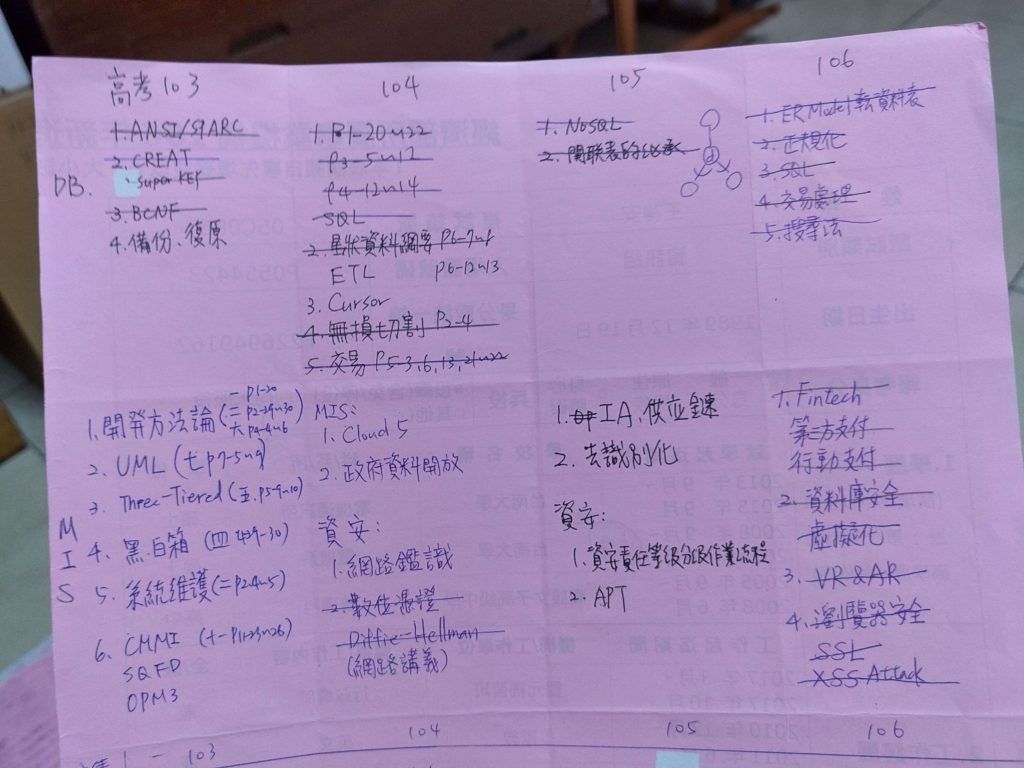 高考103
104
105
106
DB.
1. ANSI/SPARC
2. CREAT
· Super KEY
3. BCNF
4. 備份、復原
1. P1-20~22
P3-5~12
P4-12~14
SQL
2. 星狀資料綱要 P6-7~9
ETL P6-12~13
3. Cursor
4. 無損切割 P3-4
5. 交易 P5-3,6,13,21~22
1. NoSQL
2. 關联表的继承
1. ER Model轉資料表
2. 正規化
3. SQL
4. 交易處理
5. 搜尋法
MIS
1. 開發方法論 (一 P1-20
二 P2-29~30
六 P4-4~6)
2. UML (七 P7-5~9)
3. Three-Tiered (五. P5-9~10)
4. 黑.白箱 (四 29-30)
5. 系統維護 (二 P2-4~5)
6. CMMI (十一 P11-25~26)
SQFD
OPM3
MIS:
1. Cloud 5
2. 政府資料開放
資安:
1. 網路鑑識
2. 數位憑證
Diffie-Hellman
(網路講義)
1. IA、供应鍊
2. 去識別化
資安:
1. 資安責任等級分級作業流程
2. APT
1. Fintech
第三方支付
行動支付
2. 資料庫安全
虛擬化
3. VR & AR
4. 瀏覽器安全
SSL
XSS Attack
103
104
105
106